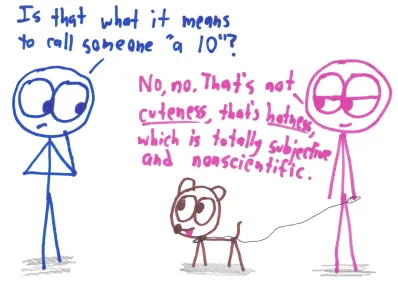 Is that what it means
to call someone "a 10"?
No, no. That's not
cuteness, that's hotness,
which is totally subjective
and nonscientific.